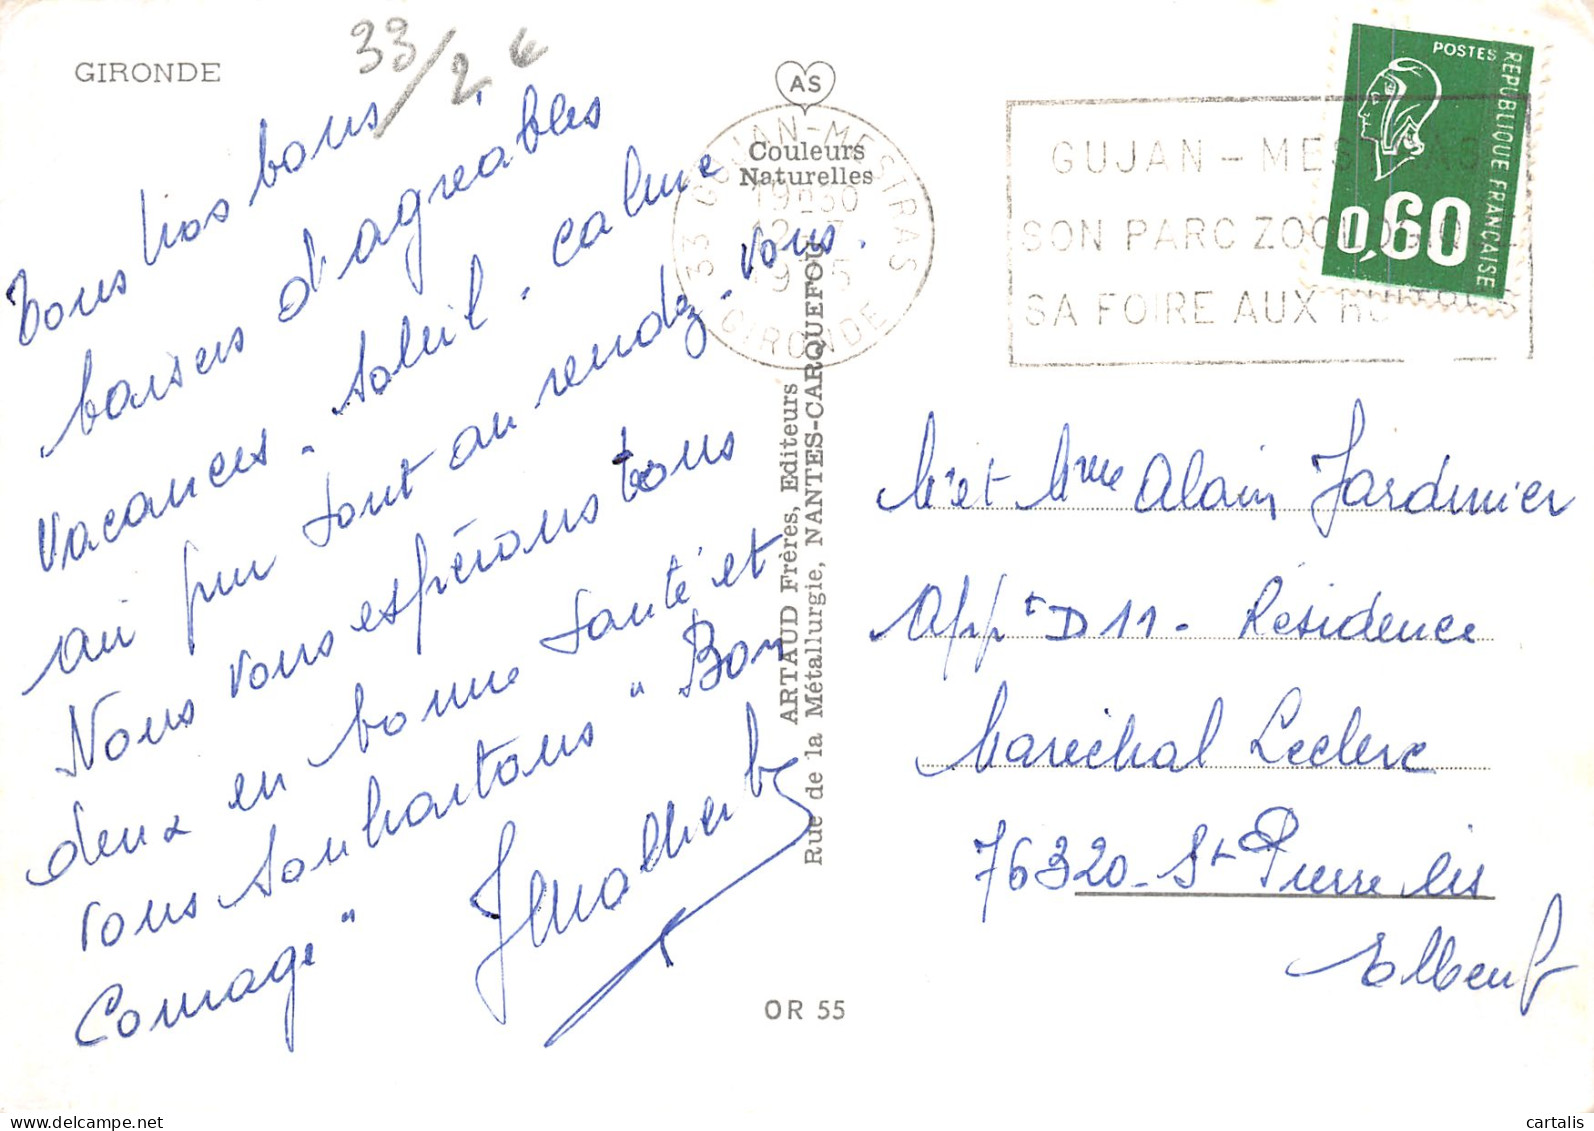 GIRONDE
33/24
Tous nos bons
baisers d'agréables
vacances - soleil - calme
air pur tout au rendez-vous.
Nous vous espérons tous
deux en bonne santé et
vous souhaitons "Bon
Courage"
AS
Couleurs
Naturelles
33 GUJAN-MESTRAS
19H30
12-7
GIRONDE
ARTAUD Frères, Editeurs
Rue de la Métallurgie, NANTES-CARQUEFOU
OR 55
GUJAN-MESTRAS
SON PARC ZOOLOGIQUE
SA FOIRE AUX HUITRES
POSTES
REPUBLIQUE FRANCAISE
0,60
Mr et Mme Alain Jardinier
Appt D11 - Résidence
Maréchal Leclerc
76320 - St Pierre les
Elbeuf
delcampe.net
cartalis